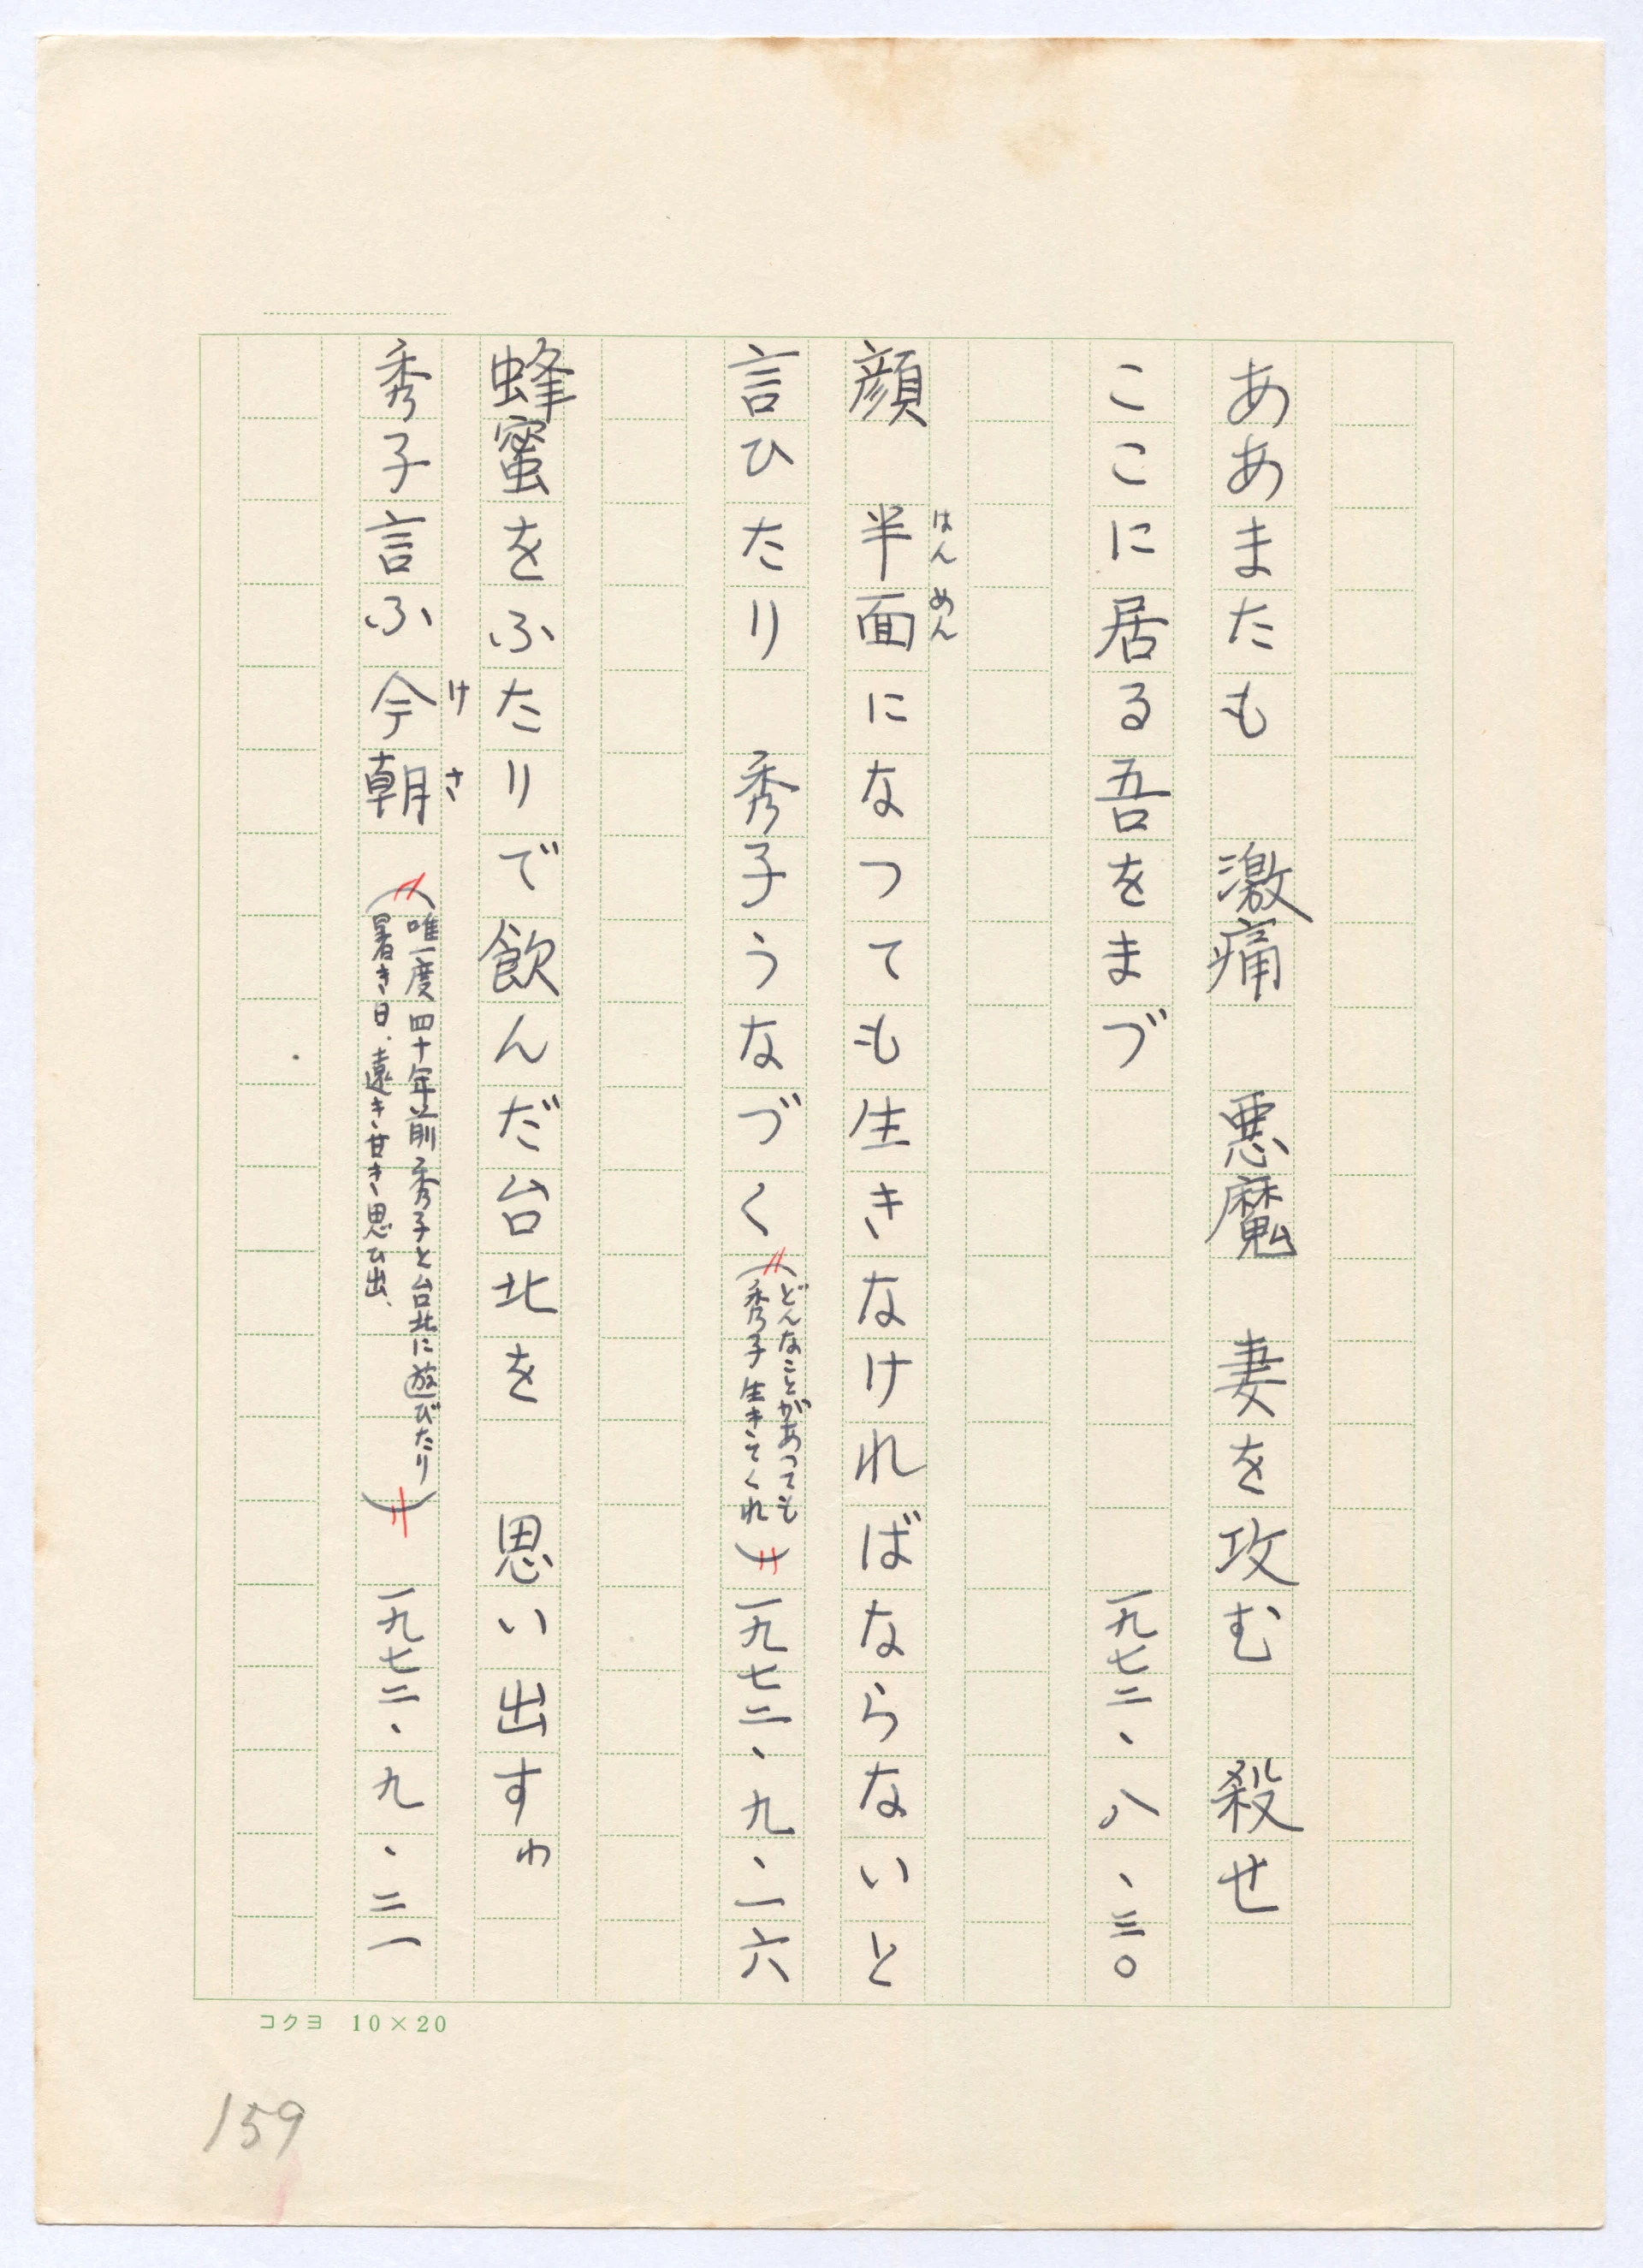 ああまたも　激痛　悪魔　妻を攻む　殺せ
ここに居る吾をまづ　一九七二、八、三〇
顔　半面になつても生きなければならないと
はんめん
言ひたり　秀子うなづく（どんなことがあつても
秀子生きてくれ）一九七二、九、一六
蜂蜜をふたりで飲んだ台北を　思い出すわ
秀子言ふ今朝（唯一度四十年前秀子と台北に遊びたり
けさ
暑き日、遠き甘き思ひ出、）一九七二、九、二一
コクヨ　10×20
159